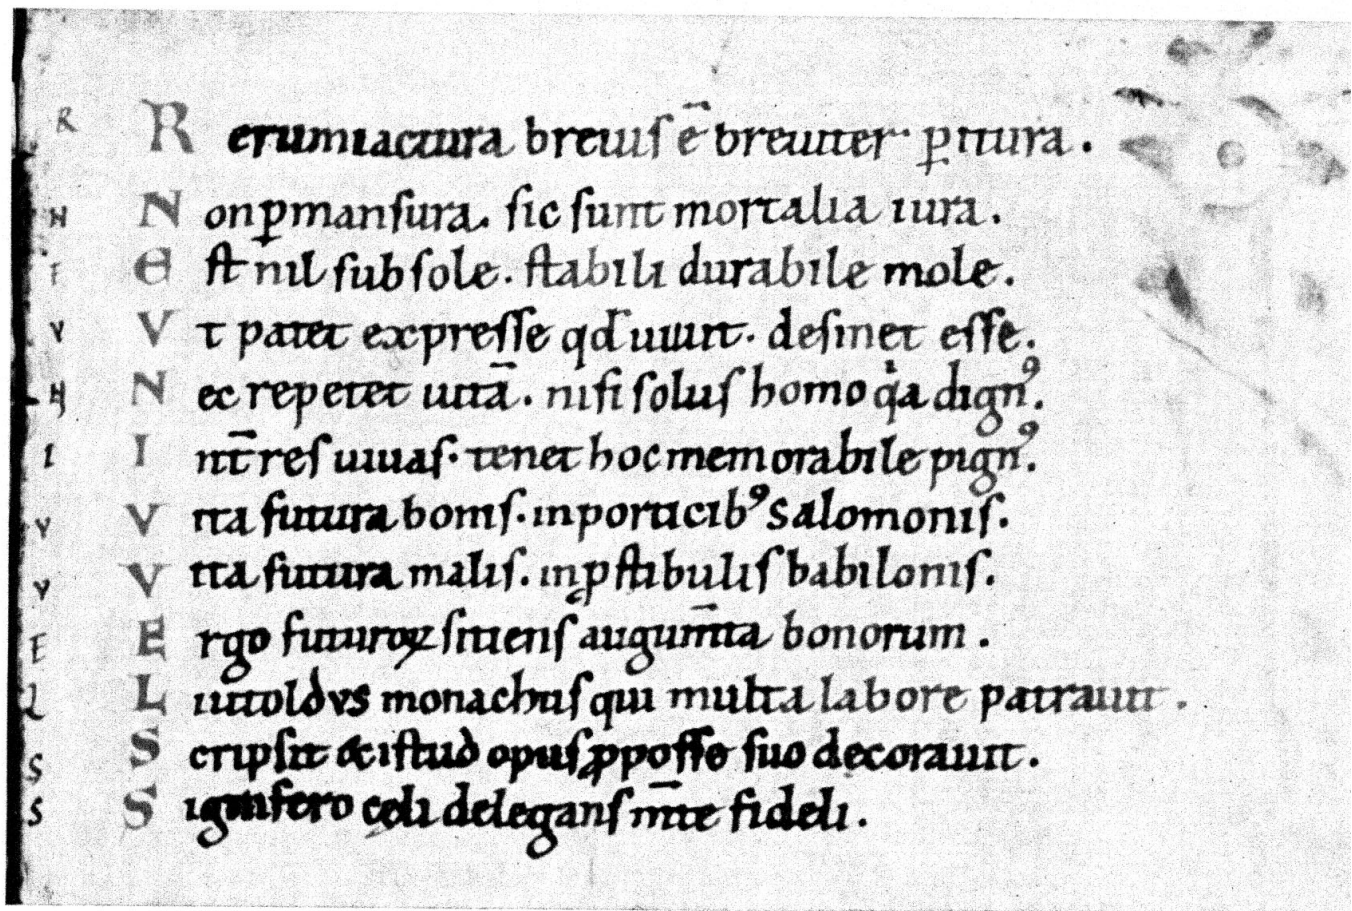 R R erum iactura breuis ē breuiter· ꝑitura.
N N on ꝑmansura. sic sunt mortalia iura.
E E st nil sub sole. stabili durabile mole.
V V t patet expresse qd̄ uiuit. desinet esse.
N N ec repetet uitā. nisi solus homo qͥa dignꝰ.
I I nt̄ res uiuas· tenet hoc memorabile pignꝰ.
V V ita futura bonis. in porticibꝰ Salomonis.
V V ita futura malis. in ꝓstibulis babilonis.
E E rgo futuroꝝ sitiens augum̄ta bonorum.
L L iutoldvs monachus qui multa labore patrauit.
S S cripsit & istud opus ꝓ posse suo decorauit.
S S ignifero cęli delegans m̄te fideli.